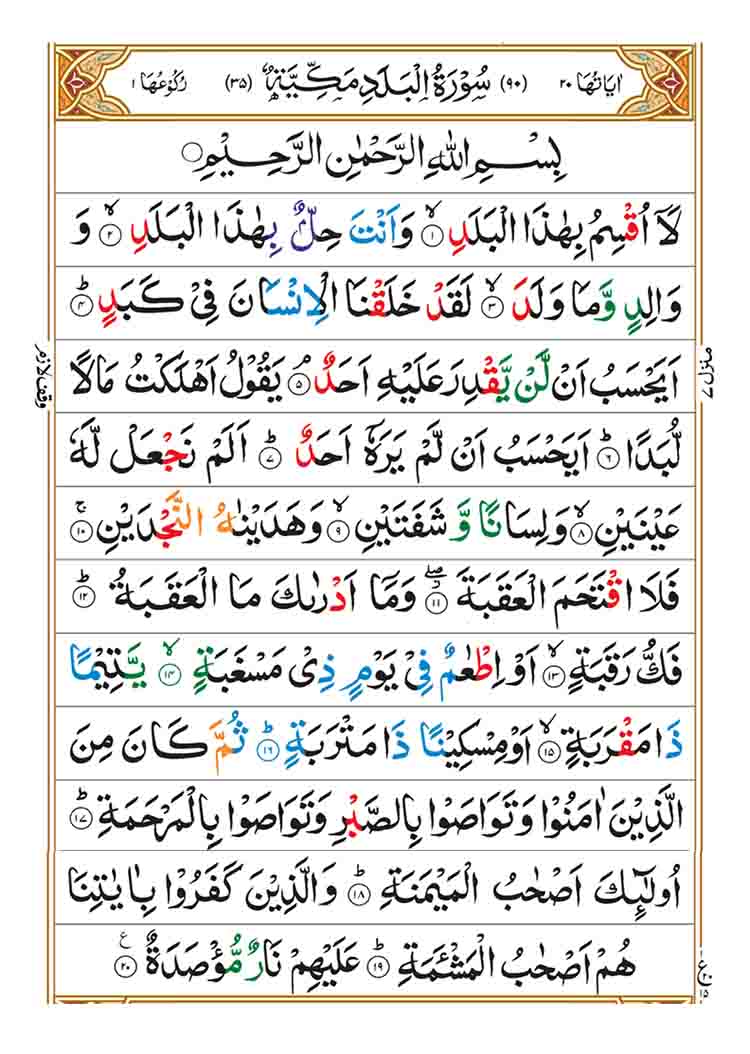 اٰيَاتُهَا ٢٠ (٩٠) سُوْرَةُ الْبَلَدِ مَكِّيَّةٌ (٣٥) رُكُوْعُهَا ١
بِسْمِ اللهِ الرَّحْمٰنِ الرَّحِيْمِ
لَاۤ اُقْسِمُ بِهٰذَا الْبَلَدِ ۙ﴿١﴾ وَاَنْتَ حِلٌّۢ بِهٰذَا الْبَلَدِ ۙ﴿٢﴾ وَ
وَالِدٍ وَّمَا وَلَدَ ۙ﴿٣﴾ لَقَدْ خَلَقْنَا الْاِنْسَانَ فِيْ كَبَدٍ ؕ﴿٤﴾
اَيَحْسَبُ اَنْ لَّنْ يَّقْدِرَ عَلَيْهِ اَحَدٌ ۘ﴿٥﴾ يَقُوْلُ اَهْلَكْتُ مَالًا
لُّبَدًا ؕ﴿٦﴾ اَيَحْسَبُ اَنْ لَّمْ يَرَهٗۤ اَحَدٌ ؕ﴿٧﴾ اَلَمْ نَجْعَلْ لَّهٗ
عَيْنَيْنِ ۙ﴿٨﴾ وَلِسَانًا وَّ شَفَتَيْنِ ۙ﴿٩﴾ وَهَدَيْنٰهُ النَّجْدَيْنِ ۚ﴿١٠﴾
فَلَا اقْتَحَمَ الْعَقَبَةَ ۖ﴿١١﴾ وَمَاۤ اَدْرٰىكَ مَا الْعَقَبَةُ ؕ﴿١٢﴾
فَكُّ رَقَبَةٍ ۙ﴿١٣﴾ اَوْ اِطْعٰمٌ فِيْ يَوْمٍ ذِيْ مَسْغَبَةٍ ۙ﴿١٤﴾ يَّتِيْمًا
ذَا مَقْرَبَةٍ ۙ﴿١٥﴾ اَوْ مِسْكِيْنًا ذَا مَتْرَبَةٍ ؕ﴿١٦﴾ ثُمَّ كَانَ مِنَ
الَّذِيْنَ اٰمَنُوْا وَتَوَاصَوْا بِالصَّبْرِ وَتَوَاصَوْا بِالْمَرْحَمَةِ ؕ﴿١٧﴾
اُولٰٓئِكَ اَصْحٰبُ الْمَيْمَنَةِ ؕ﴿١٨﴾ وَالَّذِيْنَ كَفَرُوْا بِاٰيٰتِنَا
هُمْ اَصْحٰبُ الْمَشْـَٔمَةِ ؕ﴿١٩﴾ عَلَيْهِمْ نَارٌ مُّؤْصَدَةٌ ﴿٢٠﴾ ع
منزل ٧
وقف لازم